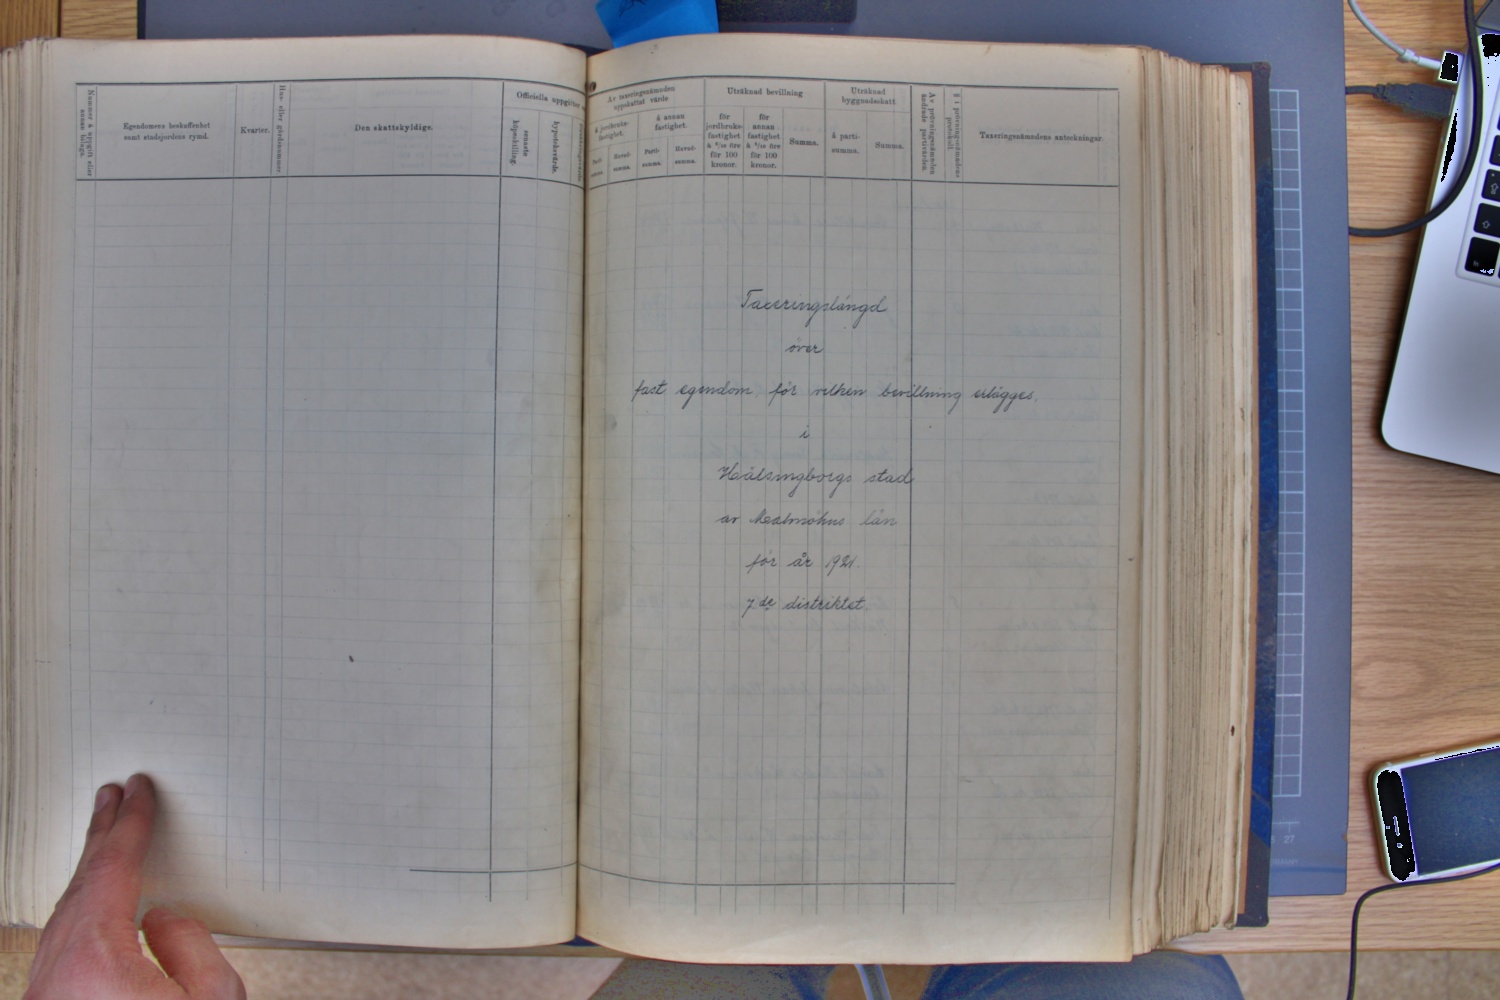 Nummer å uppgift eller annan bilaga.
Egendomens beskaffenhet
samt stadsjordens rymd.
Kvarter.
Hus- eller gårdsnummer
Den skattskyldige.
Officiella uppgifter
senaste köpeskilling.
hypoteksvärde.
Av taxeringsnämnden
uppskattat värde
å jordbruks-
fastighet.
å annan
fastighet.
Parti-
summa.
Huvud-
summa.
Parti-
summa.
Huvud-
summa.
Uträknad bevillning
för
jordbruks-
fastighet
för 100
kronor.
för
annan
fastighet
för 100
kronor.
Summa.
Uträknad
byggnadsskatt
å parti-
summa.
Summa.
Av prövningsnämnden ändrade partivärden.
§ i prövningsnämndens protokoll.
Taxeringsnämndens anteckningar.
Taxeringslängd
över
fast egendom, för vilken bevillning erlägges,
i
Hälsingborgs stad
av Malmöhus län
för år 1921.
7de distriktet.
27